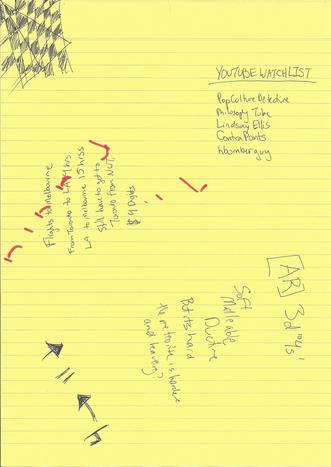 YOUTUBE WATCHLIST
Pop Culture Detective
Philosophy Tube
Lindsay Ellis
ContraPoints
hbomberguy
Flights to Melbourne
From Toronto to LA 4 hrs
LA to Melbourne 15 hrss
Still have to get to
Toronto from NU?
$ 4 digits
[AR] 3d
Soft
Malleable
Ductile
But its hard
the meteorite is hard
and